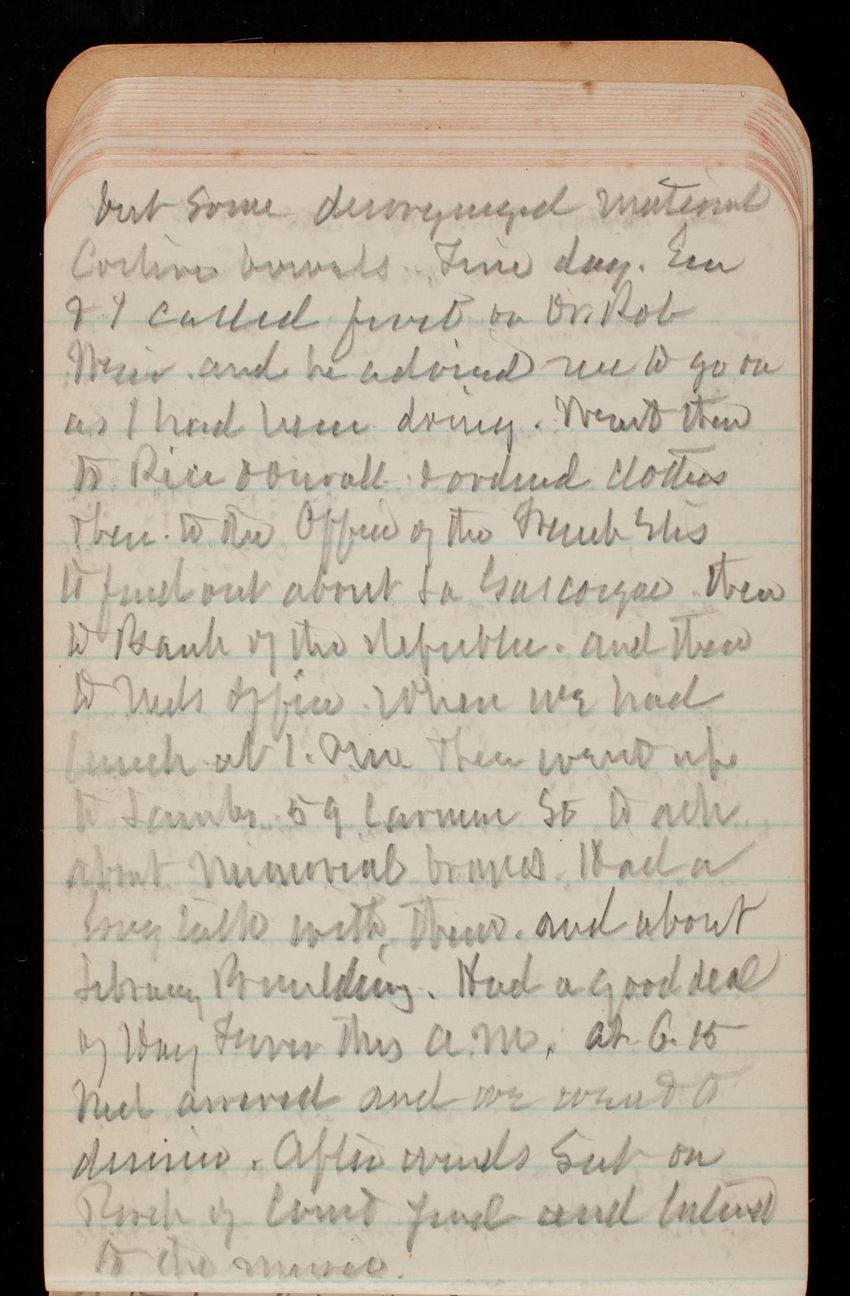 but some disorganized material
Costive bowels. Fine day. Eva
& I called first on Dr. Rob
Weir and he advised me to go on
as I had been doing. Went then
to Rice & Duvall & ordered clothes
then to the Office of the French
to find out about La Gascogne then
to Bank of the Republic. and then
to Neds Office. When we had
lunch at 1. P.M. then went up
to Lambs 59 Carmine St to ask
about Memorial brasses. Had a
long talk with them. and about
Library Building. Had a good deal
of Hay Fever this A.M. at 6.15
Ned arrived and we went to
dinner. Afterwards sat on
Porch of Court yard and listened
to the music.